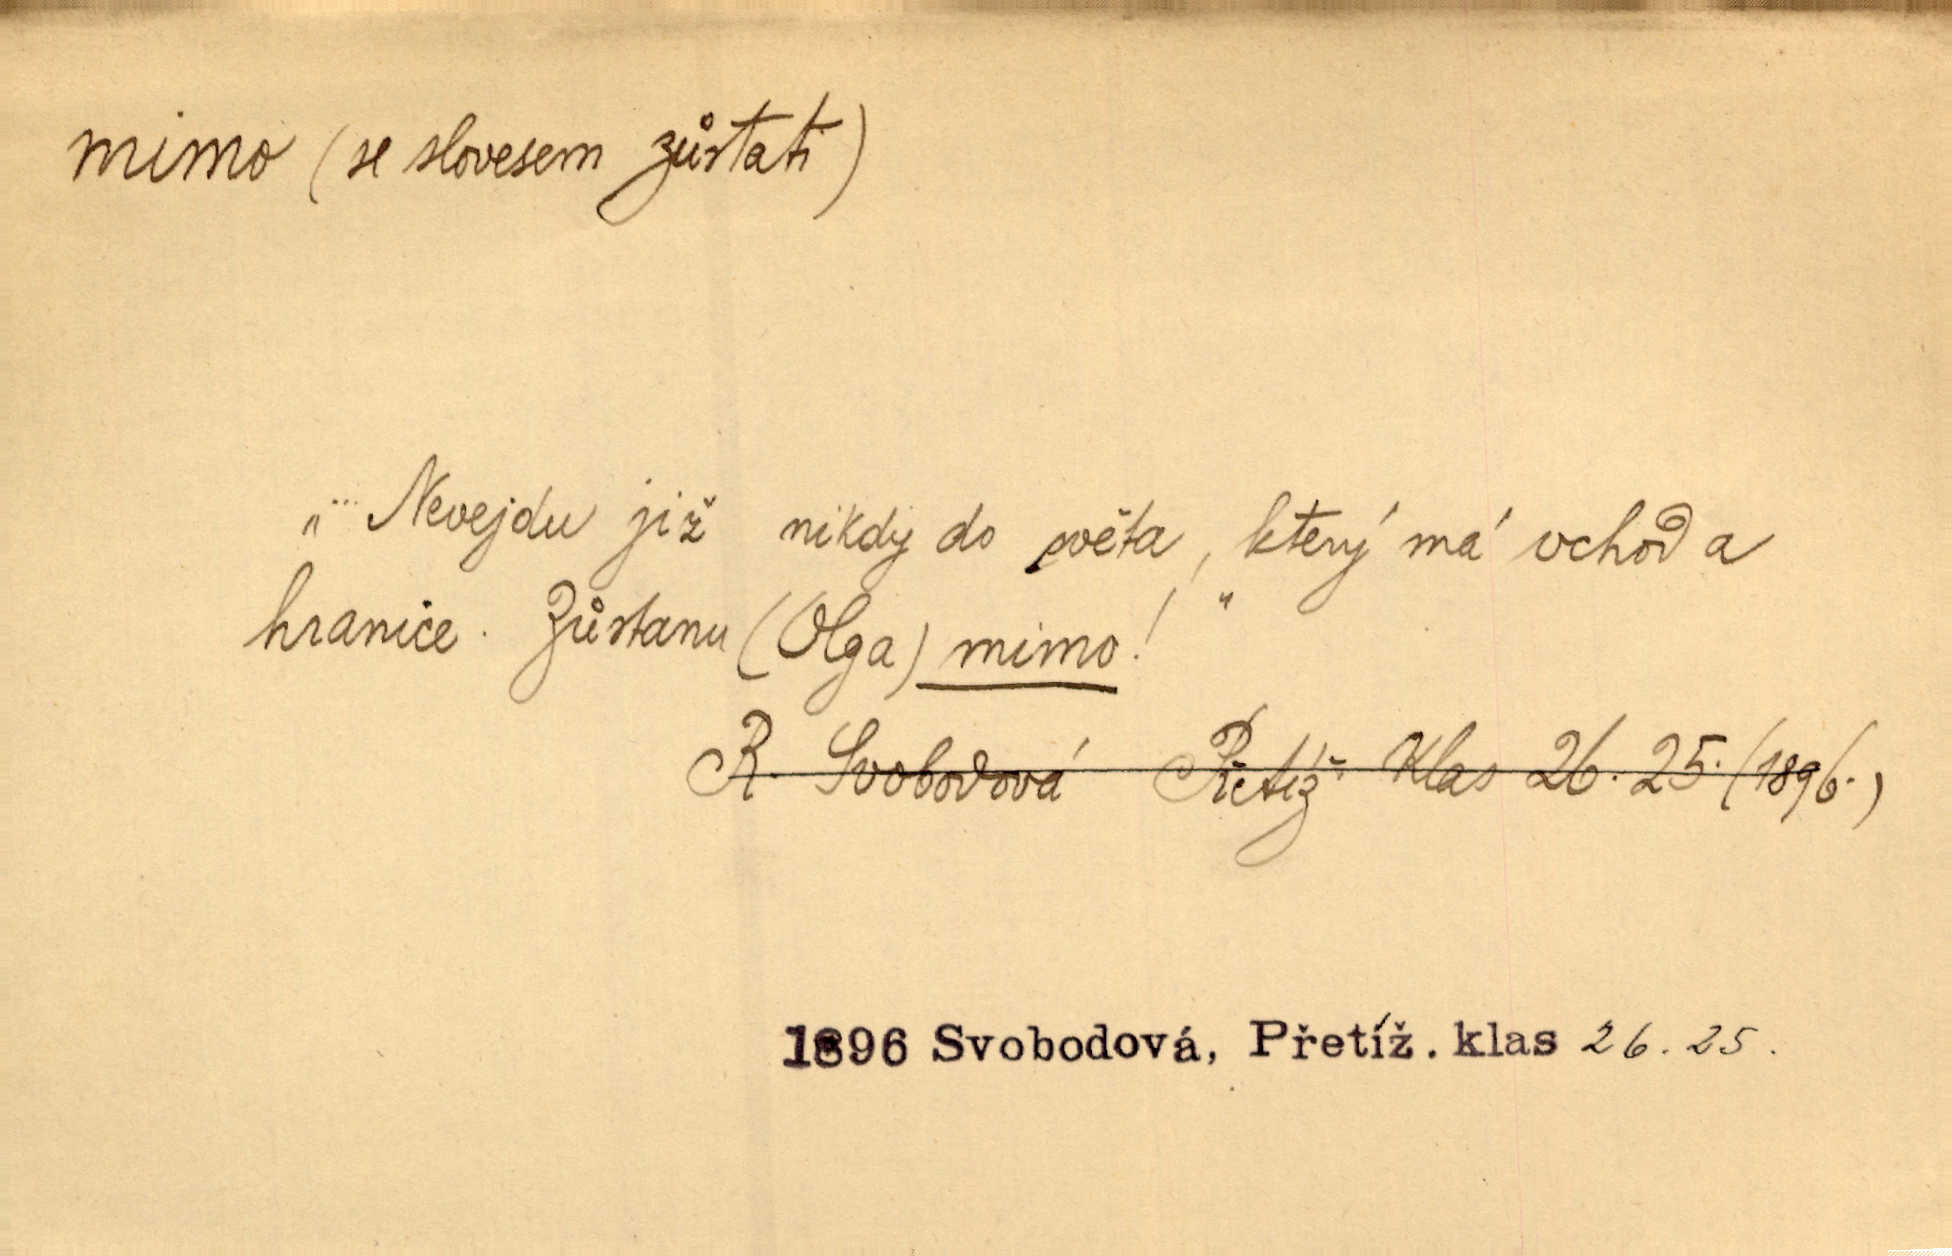 mimo (se slovesem zůstati)
„… Nevejdu již nikdy do světa, který má vchod a
hranice. Zůstanu (Olga) mimo!“
R. Svobodová Přetíž. Klas 26. 25. (1896.)
1896 Svobodová, Přetíž. klas 26. 25.